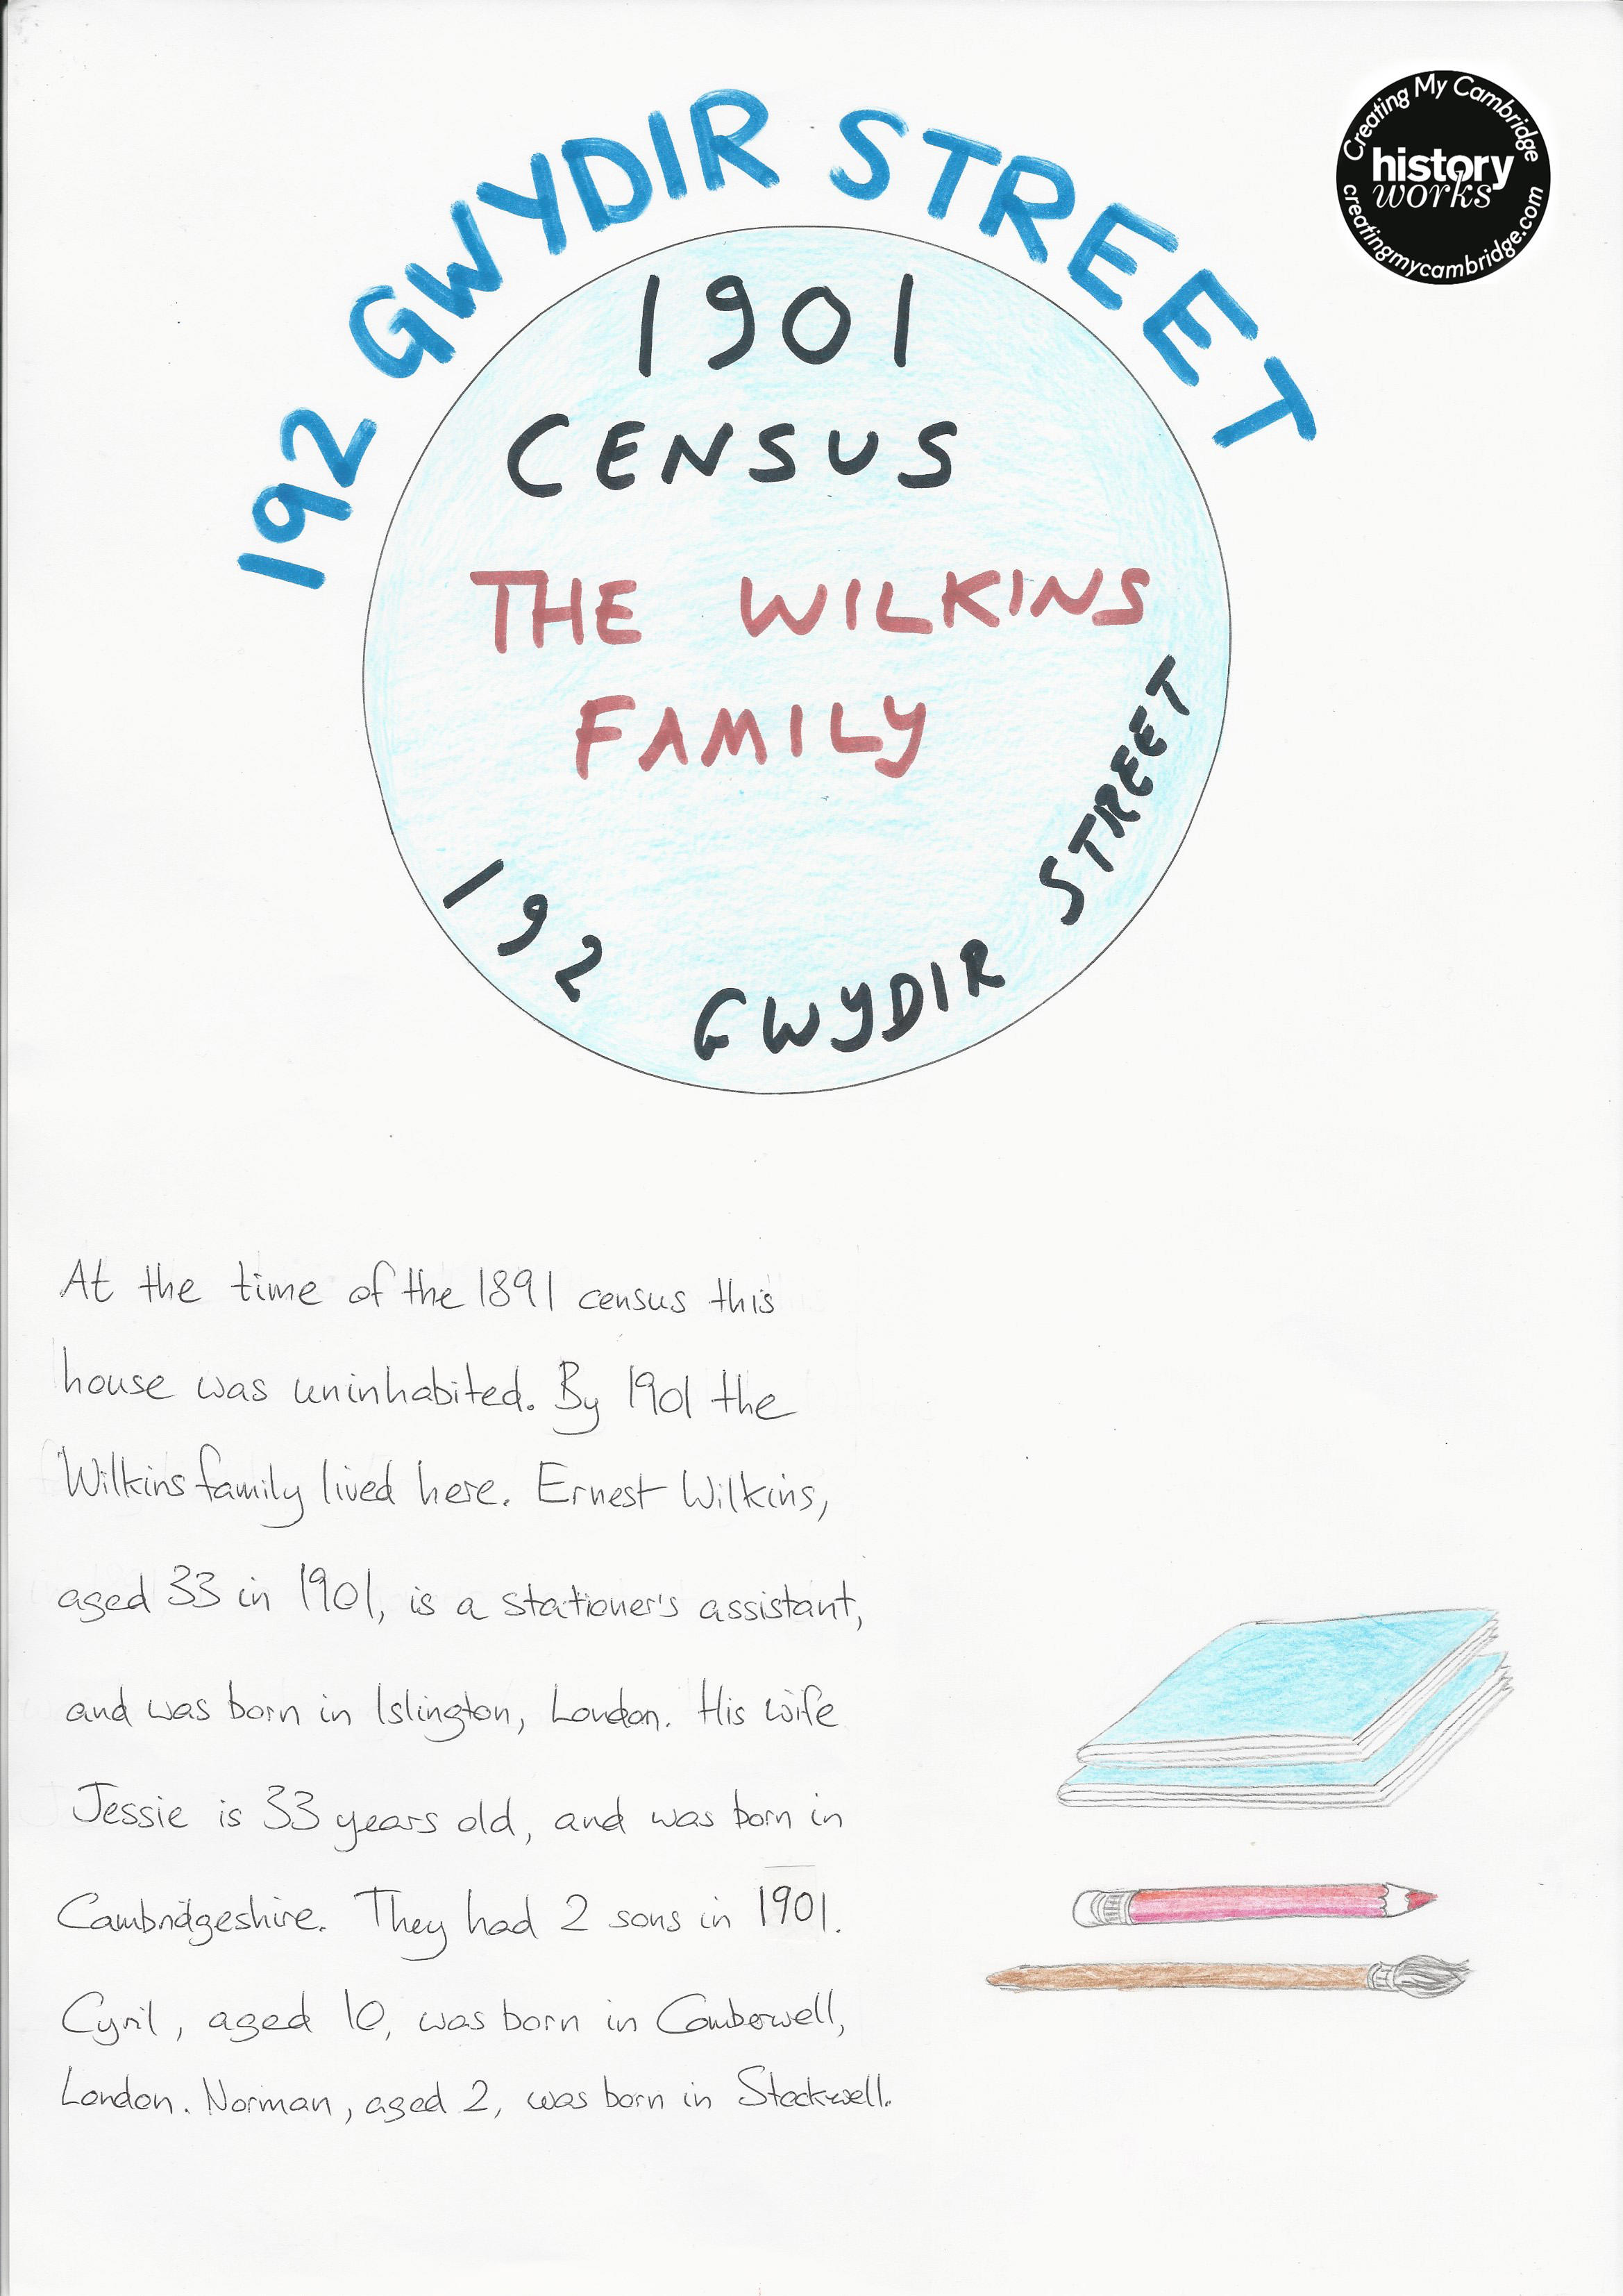 192 GWYDIR STREET
Creating My Cambridge
history
works
creatingmycambridge.com
1901
CENSUS
THE WILKINS
FAMILY
192 GWYDIR STREET
At the time of the 1891 census this
house was uninhabited. By 1901 the
Wilkins family lived here. Ernest Wilkins,
aged 33 in 1901, is a stationer's assistant,
and was born in Islington, London. His wife
Jessie is 33 years old, and was born in
Cambridgeshire. They had 2 sons in 1901.
Cyril, aged 10, was born in Camberwell,
London. Norman, aged 2, was born in Stockwell.